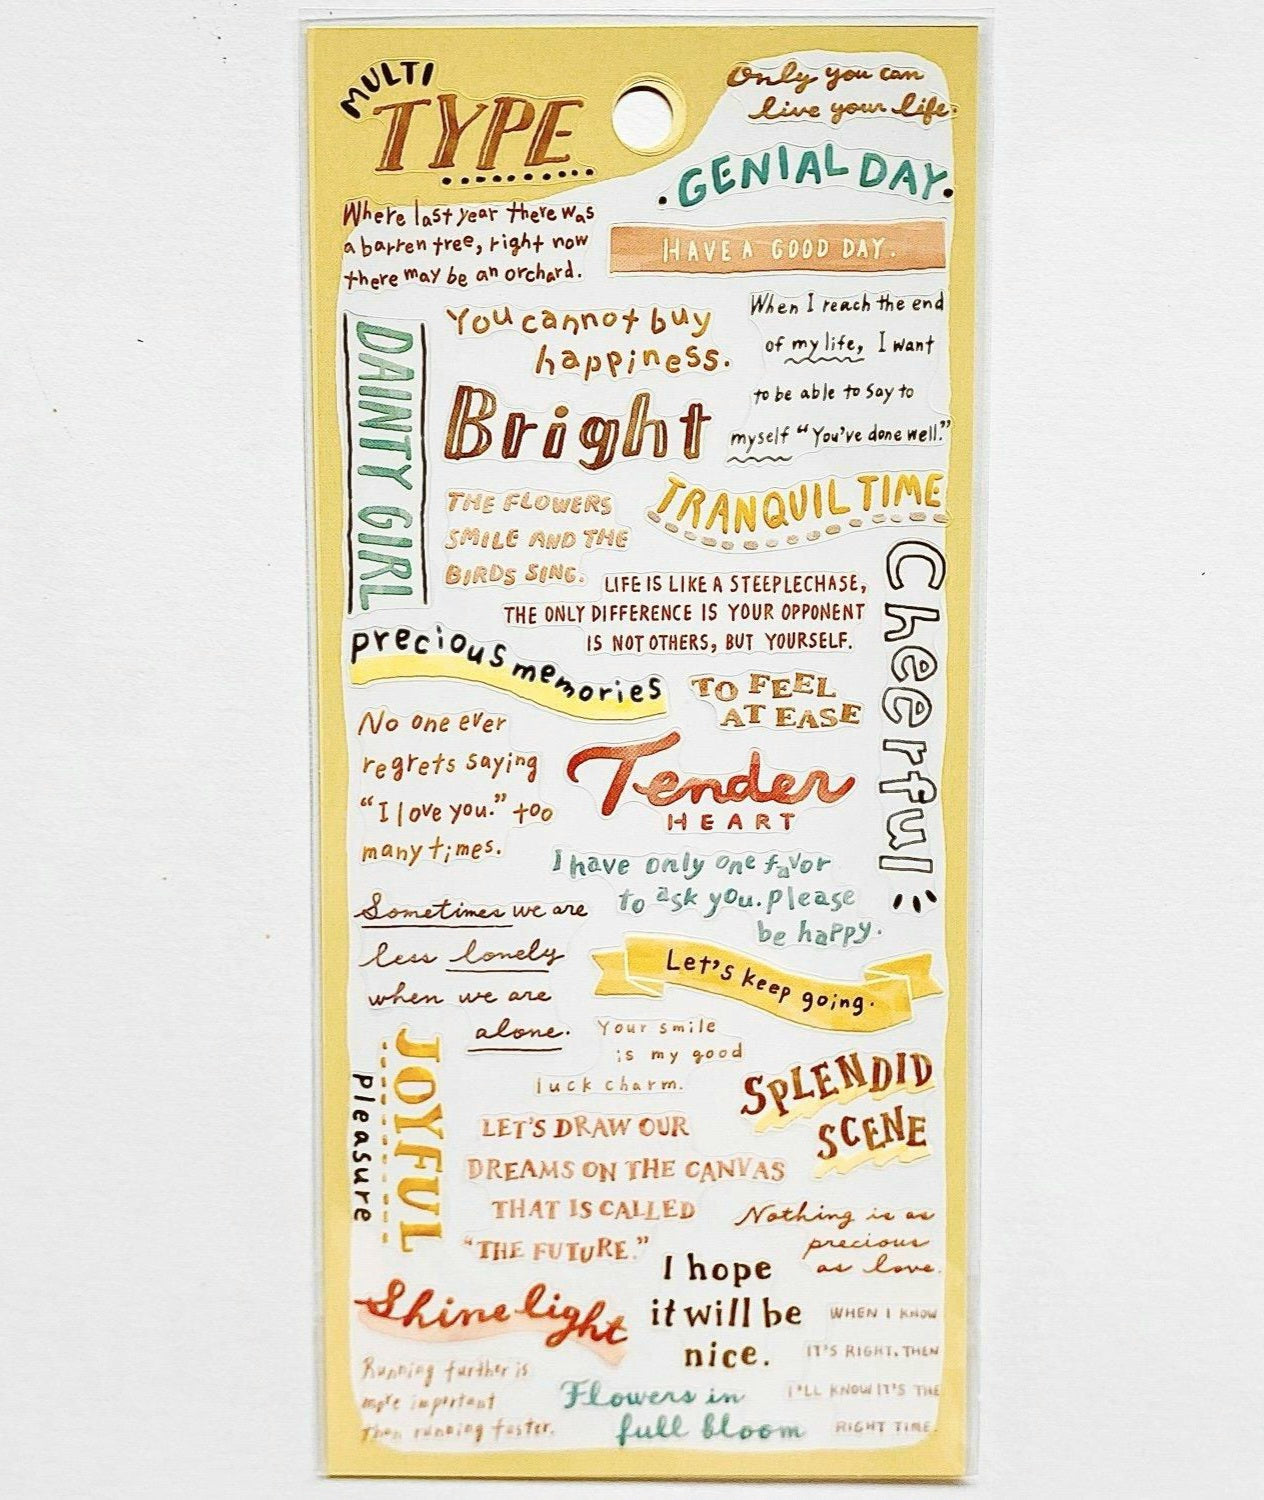 MULTI
TYPE
Only you can
live your life.
GENIAL DAY
Where last year there was
a barren tree, right now
there may be an orchard.
HAVE A GOOD DAY.
You cannot buy
happiness.
When I reach the end
of my life, I want
to be able to say to
myself “You've done well.”
DAINTY GIRL
Bright
THE FLOWERS
SMILE AND THE
BIRDS SING.
TRANQUIL TIME
LIFE IS LIKE A STEEPLECHASE,
THE ONLY DIFFERENCE IS YOUR OPPONENT
IS NOT OTHERS, BUT YOURSELF.
Cheerful
precious memories
TO FEEL
AT EASE
No one ever
regrets saying
“I love you.” too
many times.
Tender
HEART
I have only one favor
to ask you. please
be happy.
Sometimes we are
less lonely
when we are
alone.
Let's keep going.
Your smile
is my good
luck charm.
JOYFUL
pleasure
SPLENDID
SCENE
LET'S DRAW OUR
DREAMS ON THE CANVAS
THAT IS CALLED
“THE FUTURE.”
Nothing is as
precious
as love.
Shine light
I hope
it will be
nice.
WHEN I KNOW
IT'S RIGHT, THEN
I'LL KNOW IT'S THE
RIGHT TIME.
Running further is
more important
than running faster.
Flowers in
full bloom